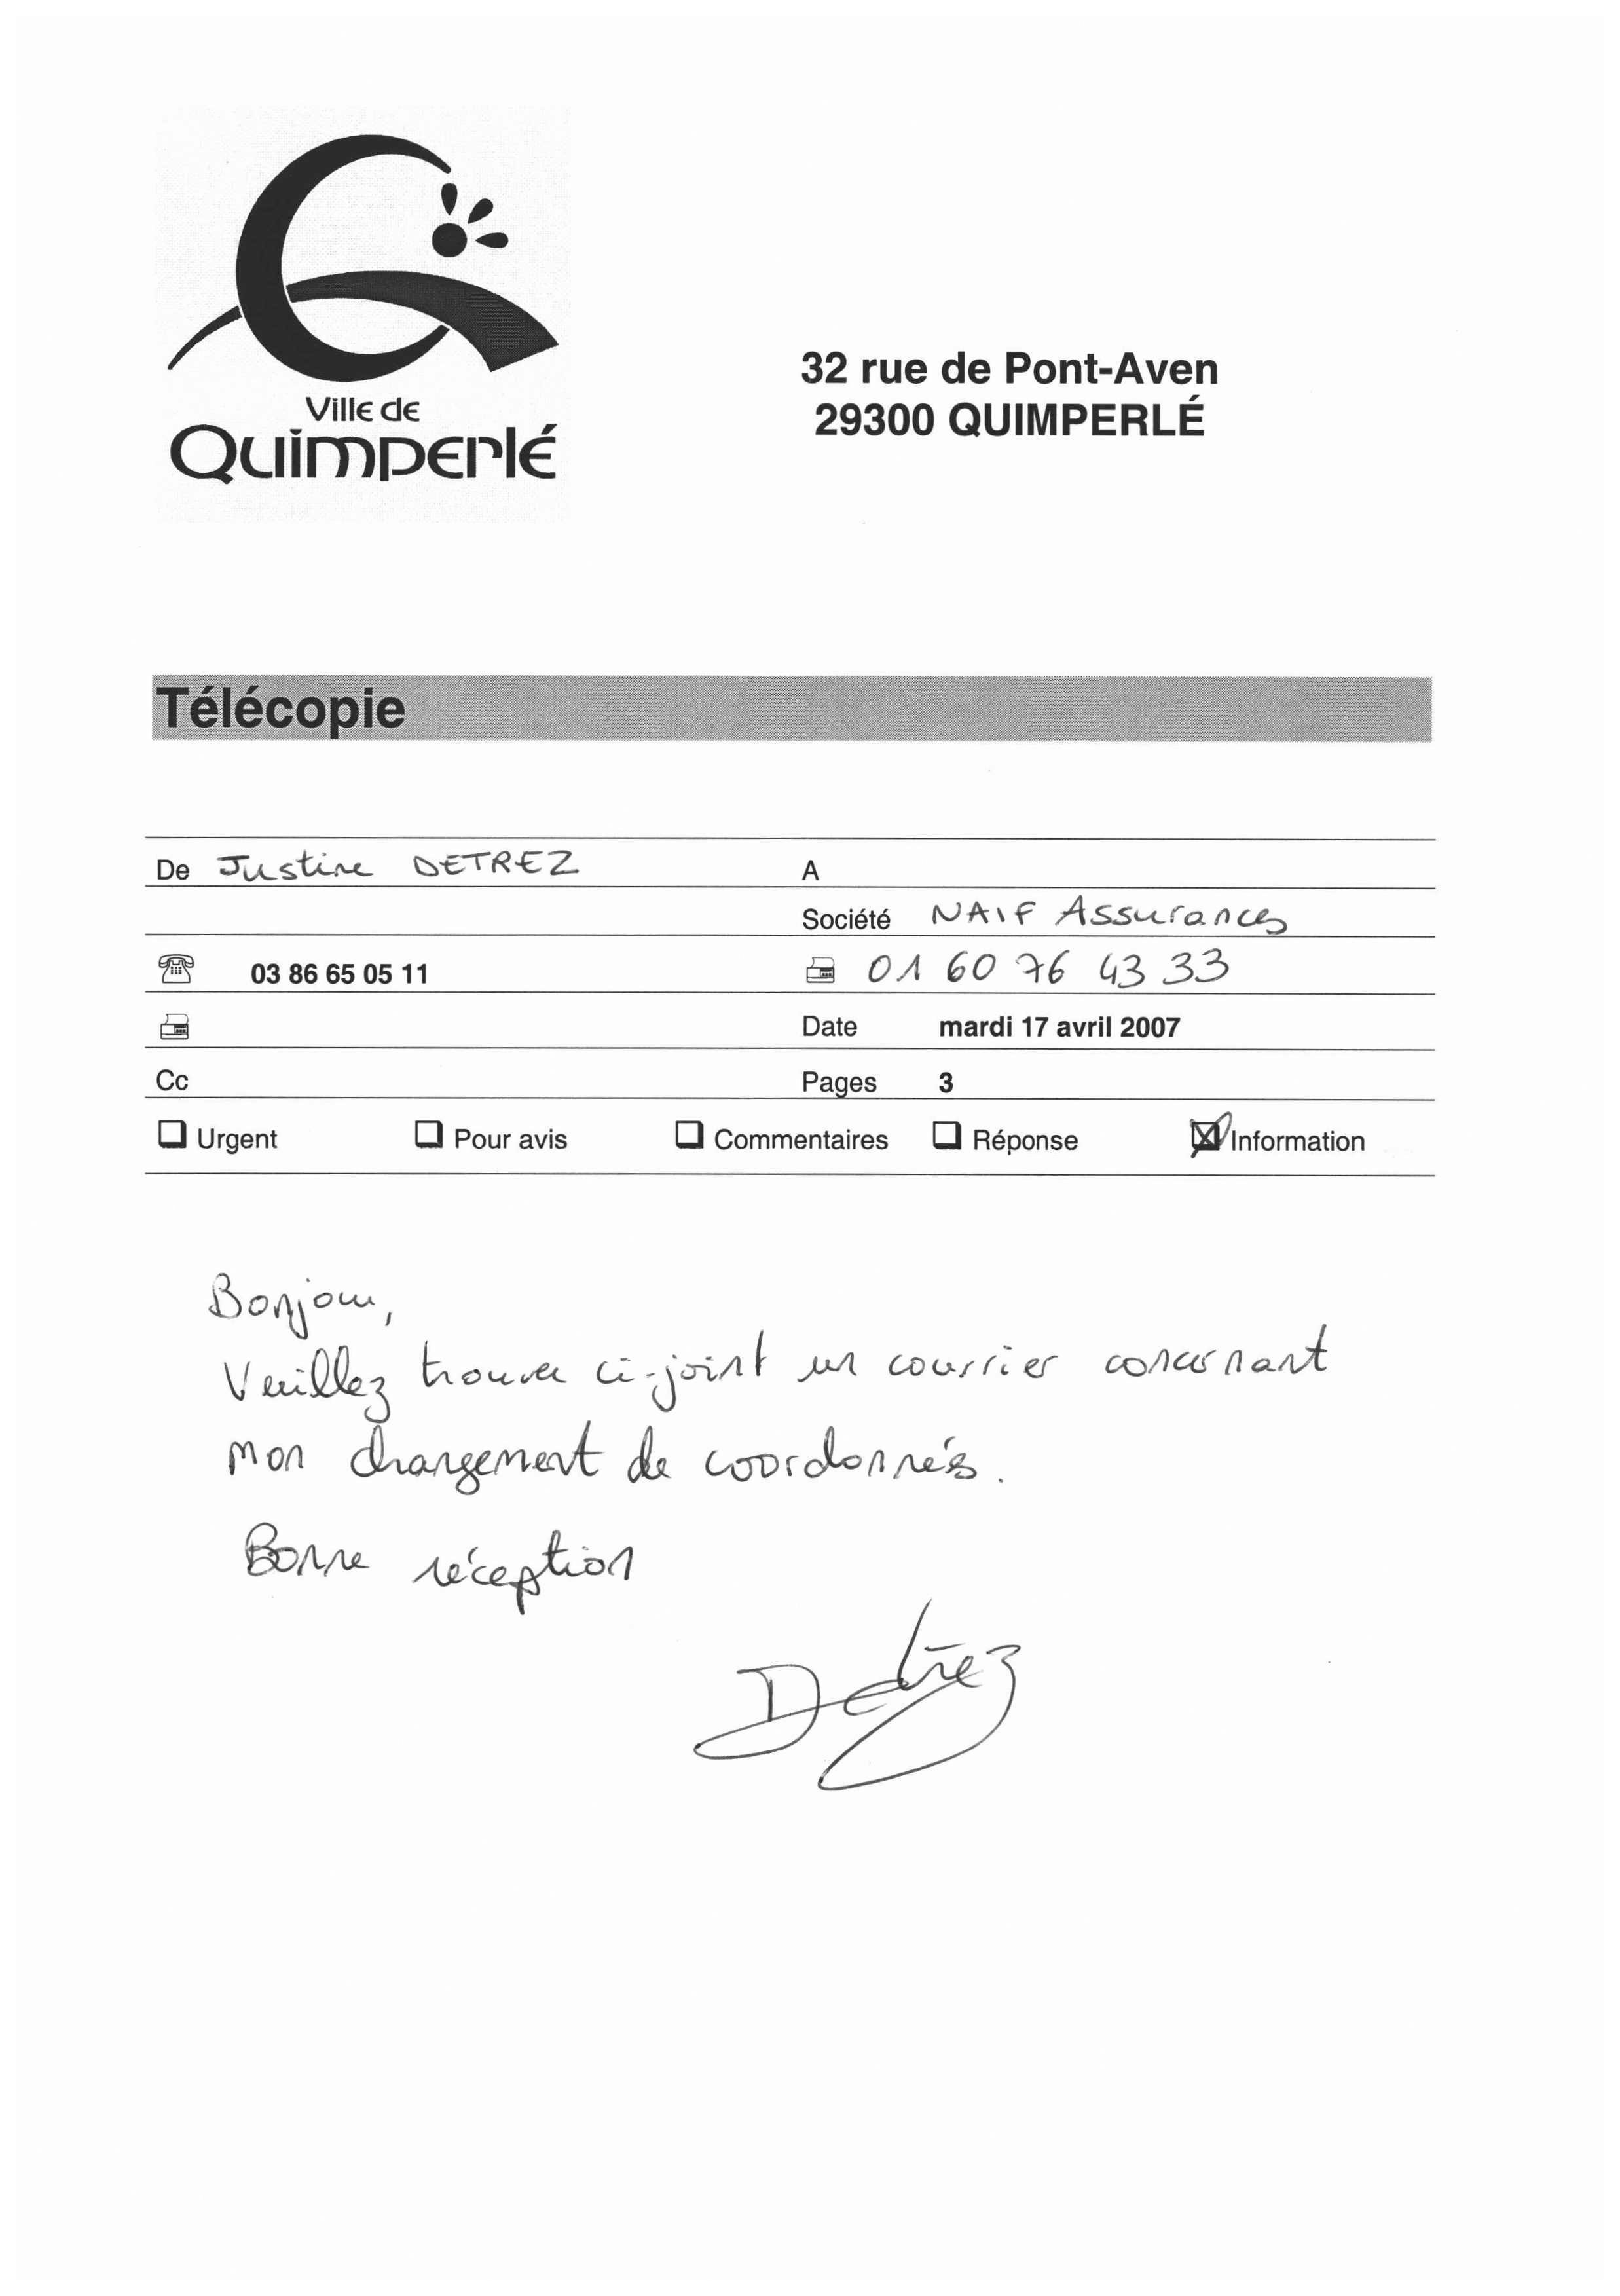 Ville de
Quimperlé
32 rue de Pont-Aven
29300 QUIMPERLÉ
Télécopie
De Justine DETREZ A
Société NAIF Assurances
03 86 65 05 11 01 60 76 43 33
Date mardi 17 avril 2007
Cc Pages 3
Urgent Pour avis Commentaires Réponse Information
Bonjour,
Veuillez trouver ci-joint un courrier concernant
mon changement de coordonnées.
Bonne réception
Detrez